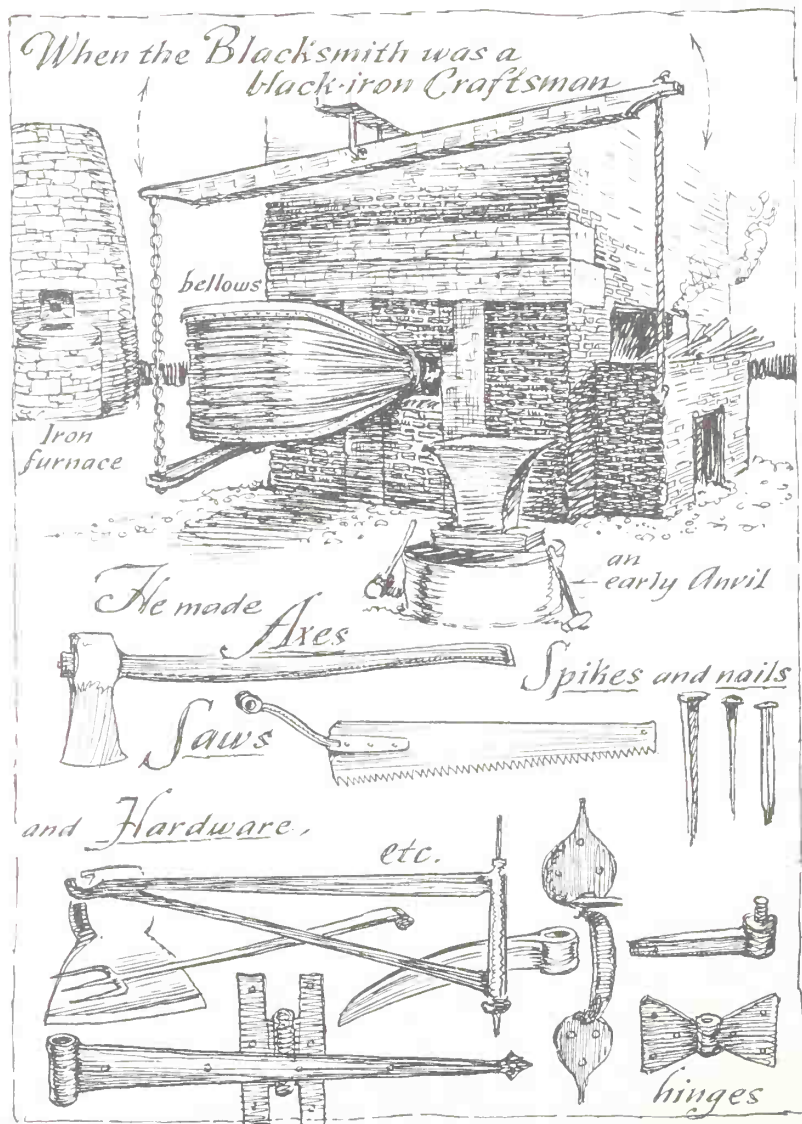 When the Blacksmith was a
black-iron Craftsman
bellows
Iron
furnace
an
early Anvil
He made
Axes
Spikes and nails
Saws
and Hardware,
etc.
hinges